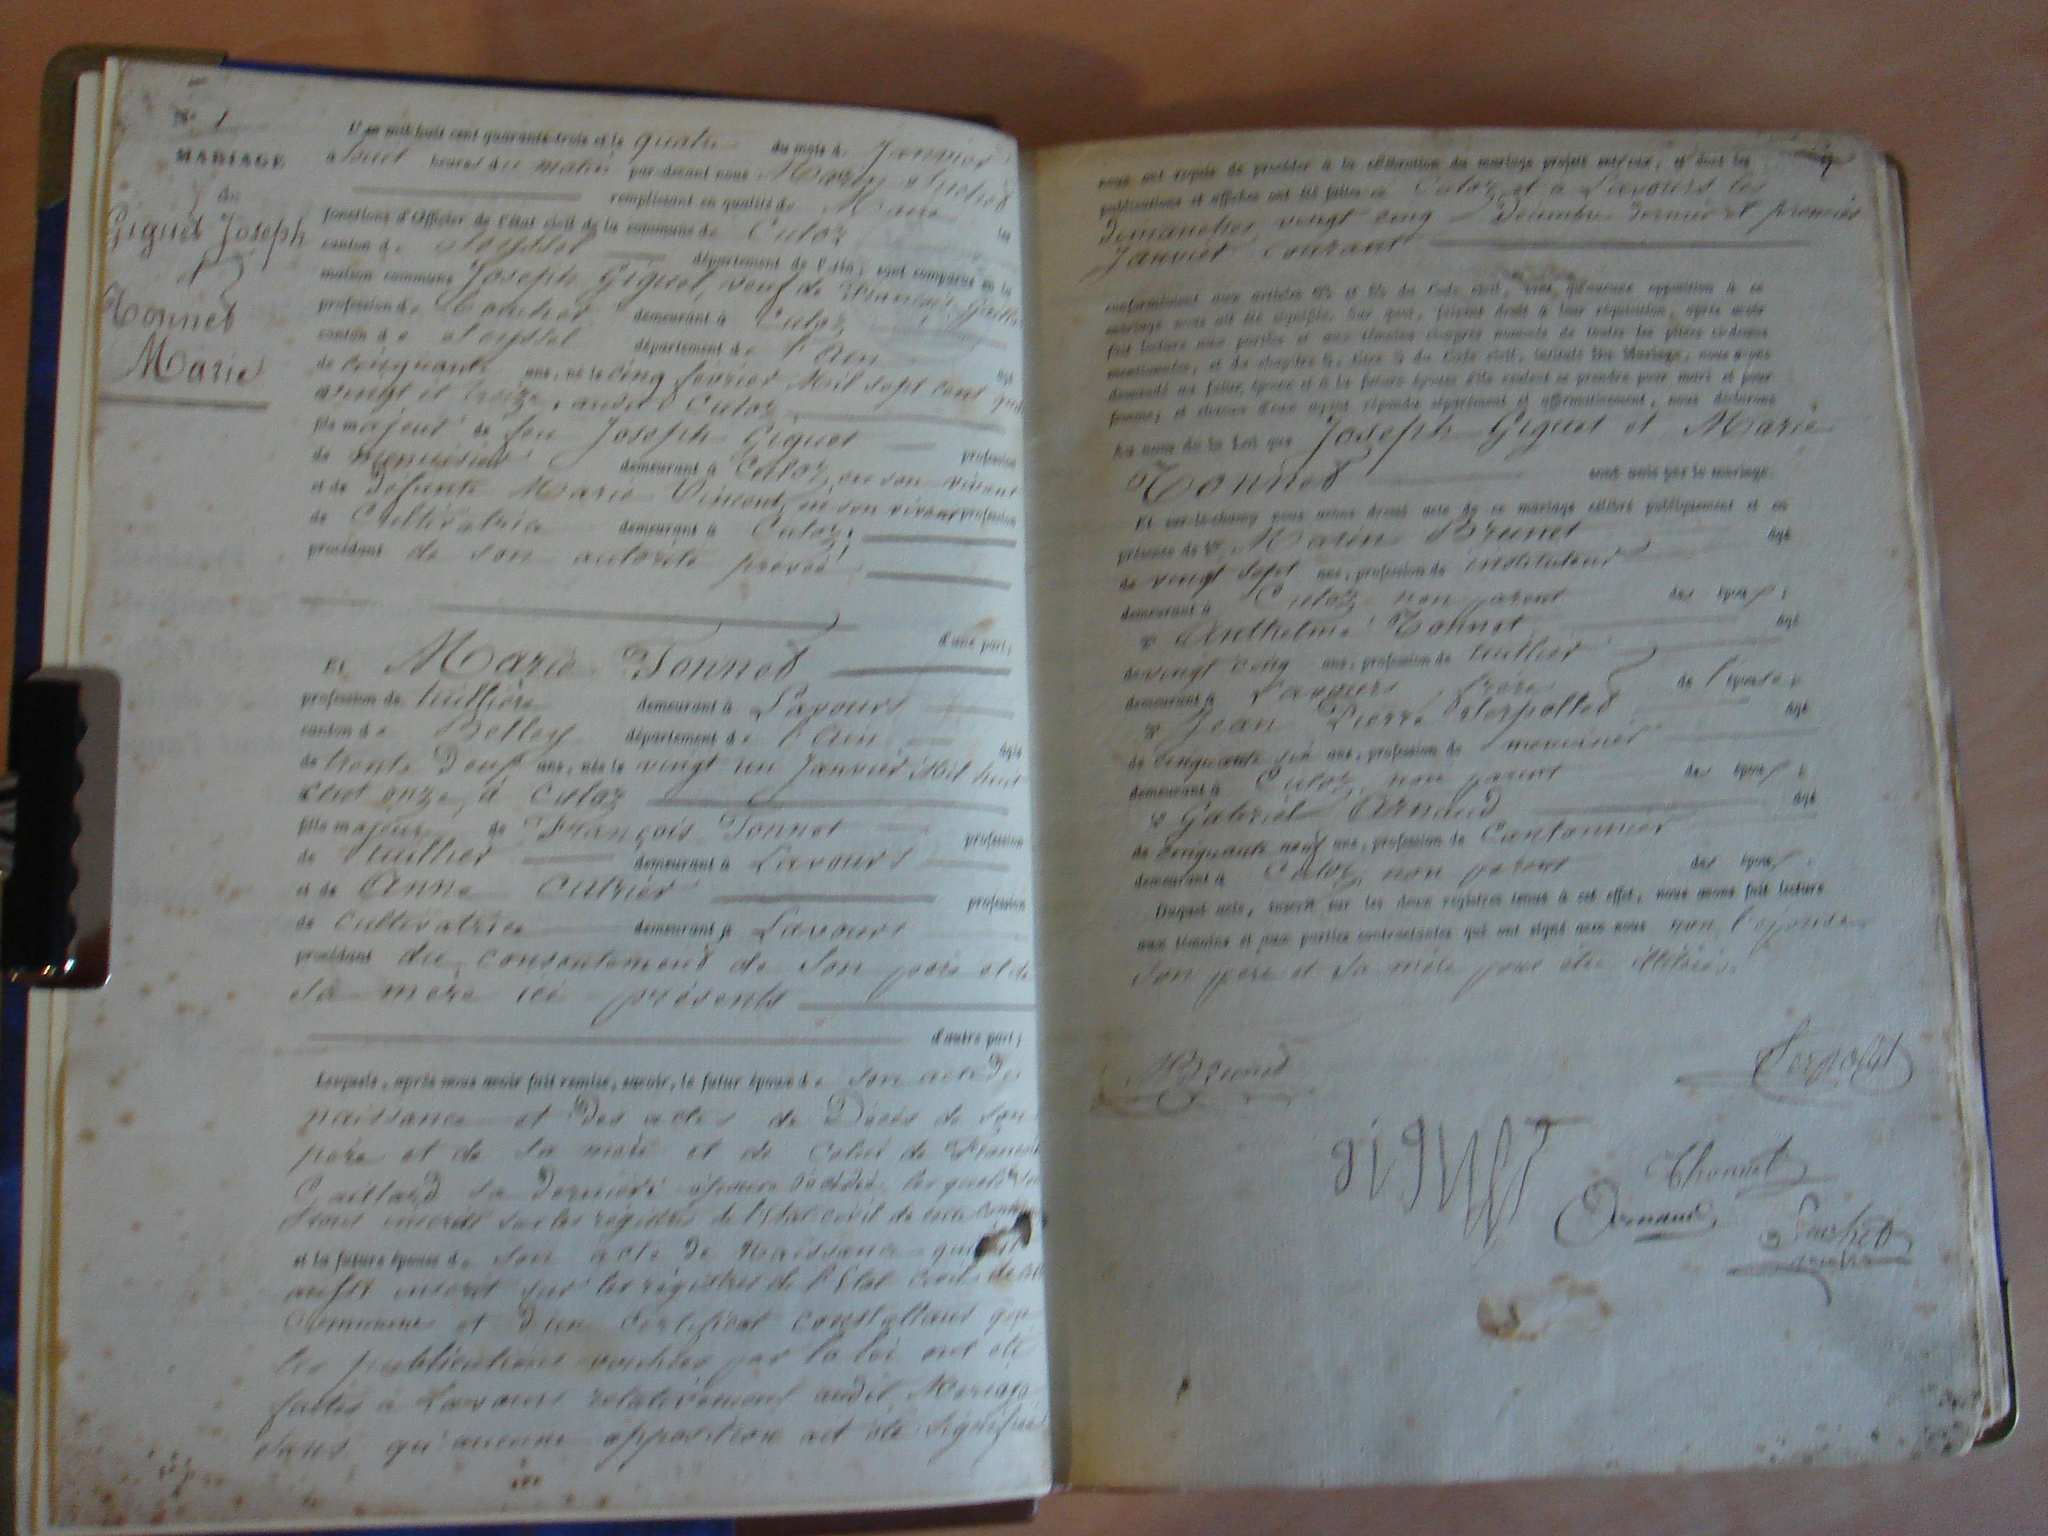 N° 1
MARIAGE
de
Giguet Joseph
et
Tonnet
Marie
L'an mil huit cent quarante-trois et le quatre du mois de Janvier
à huit heures du matin par devant nous
remplissant en qualité de Maire les
fonctions d'Officier de l'état civil de la commune de Culoz
canton de Seyssel département de l'Ain, sont comparus en la
maison commune Joseph Giguet, veuf de
profession de demeurant à Culoz
canton de Seyssel département de l'Ain âgé
de cinquante ans, né le cinq février Mil sept cent quatre
vingt et treize, audit Culoz
fils majeur de feu Joseph Giguet profession
de menuisier demeurant à Culoz, en son vivant
et de defunte Marie Vincent, en son vivant profession
de Cultivatrice demeurant à Culoz;
procédant de son autorité privée
d'une part;
Et Marie Tonnet
profession de tuillière demeurant à Lavours
canton de Belley département de l'Ain âgée
de trente deux ans, née le vingt un Janvier Mil huit
cent onze, à Culoz
fille majeure de François Tonnet profession
de tuillier demeurant à Lavours
et de Anne Cutrier profession
de Cultivatrice demeurant à Lavours
procédant du consentement de son père et de
sa mère ici présents
d'autre part;
Lesquels, après nous avoir fait remise, savoir, le futur époux de son acte de
naissance et des actes de Décès de son
père et de sa mère et de celui de
Gaillard sa dernière épouse décédée, les quels
inscrits sur les régistres de l'Etat civil de cette commune
et la future épouse de son acte de naissance qui est
aussi inscrit sur les régistres de l'Etat civil de cette
Commune et d'un certificat constattant que
les publications voulues par la loi ont été
faites à Lavours relativement audit Mariage
sans qu'aucune opposition ait été signifiée
nous ont requis de procéder à la célébration du mariage projeté entr'eux, et dont les
publications et affiches ont été faites à Culoz et à Lavours les
dimanches vingt cinq Décembre dernier et premier
Janvier courant
conformément aux articles 63 et 64 du Code civil, sans qu'aucune opposition à ce
mariage nous ait été signifiée. Sur quoi, faisant droit à leur réquisition, après avoir
fait lecture aux parties et aux témoins de toutes les pièces ci-dessus
mentionnées, et du chapitre 6, titre 5 du Code civil, intitulé Du Mariage, nous avons
demandé au futur époux et à la future épouse s'ils veulent se prendre pour mari et pour
femme; et chacun d'eux ayant répondu séparément et affirmativement, nous déclarons
Au nom de la Loi que Joseph Giguet et Marie
Tonnet sont unis par le mariage.
Et sur-le-champ nous avons dressé acte de ce mariage célébré publiquement et en
présence de 1° Marin Brunet âgé
de vingt sept ans, profession de instituteur
demeurant à Culoz non parent des époux;
2° Anthelme Tonnet âgé
de vingt cinq ans, profession de tuillier
demeurant à Lavours frère de l'épouse;
3° Jean Pierre Serpollet âgé
de cinquante six ans, profession de menuisier
demeurant à Culoz, non parent des époux;
4° Gabriel Arnaud âgé
de cinquante neuf ans, profession de Cantonnier
demeurant à Culoz, non parent des époux.
Duquel acte, inscrit sur les deux régistres tenus à cet effet, nous avons fait lecture
aux témoins et aux parties contractantes qui ont signé avec nous non l'épouse
son père et sa mère pour être illitérés.
Brunet
Serpollet
Thonnet
Arnaud